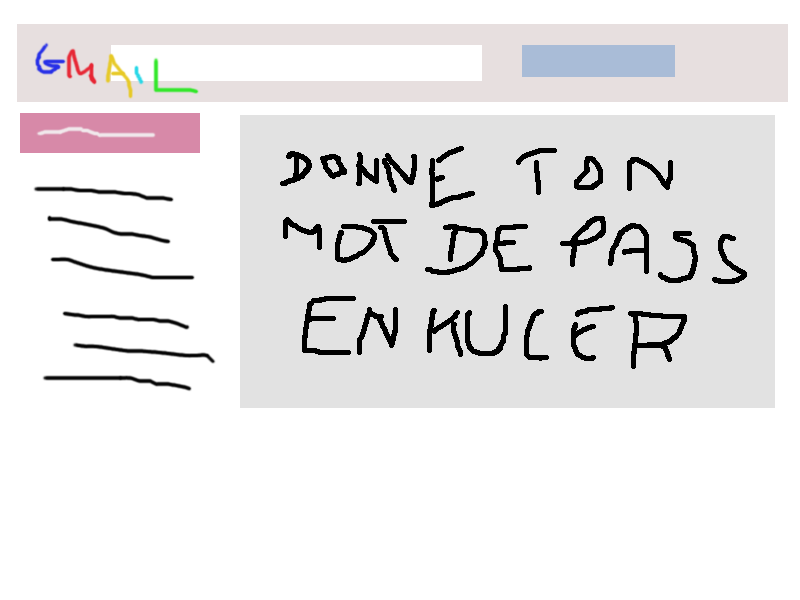 GMAIL
DONNE TON
MOT DE PASS
ENKULER